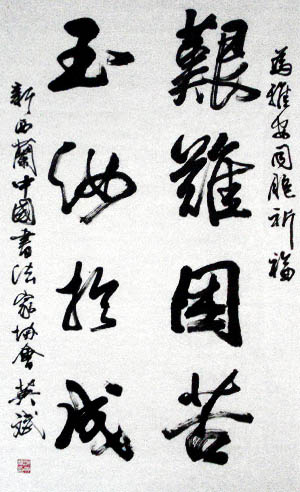 為雅安同胞祈福
艱難困苦
玉汝於成
新西蘭中國書法家協會 英斌